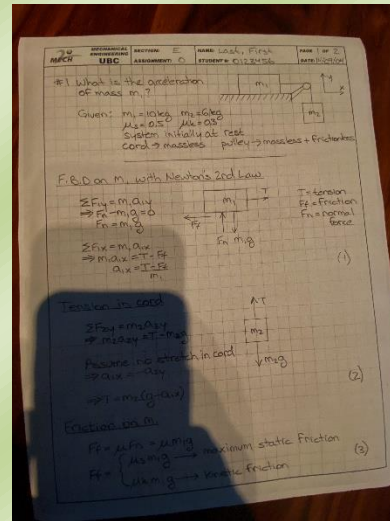 MECH
MECHANICAL ENGINEERING
UBC
SECTION: E
ASSIGNMENT: 0
NAME: Last, First
STUDENT #: 0123456
PAGE 1 OF 2
DATE:
#1 What is the acceleration
of mass m₁?
m₁
m₂
y
x
Given: m₁ = 10kg m₂ = 6kg
μs = 0.5 μk = 0.3
system initially at rest
cord → massless pulley → massless + frictionless
F.B.D on m₁ with Newton's 2nd Law
ΣF₁y = m₁a₁y
⇒ Fn - m₁g = 0
Fn = m₁g
m₁
T
Ff
Fn m₁g
T = tension
Ff = friction
Fn = normal
force
ΣF₁x = m₁a₁x
⇒ m₁a₁x = T - Ff
a₁x = T - Ff
m₁
(1)
Tension in cord
ΣF₂y = m₂a₂y
⇒ m₂a₂y = T - m₂g
T
m₂
m₂g
Assume no stretch in cord
⇒ a₁x = -a₂y
(2)
⇒ T = m₂(g - a₁x)
Friction on m₁
Ff = μFn = μm₁g
Ff = { μsm₁g → maximum static friction
μkm₁g → kinetic friction
(3)